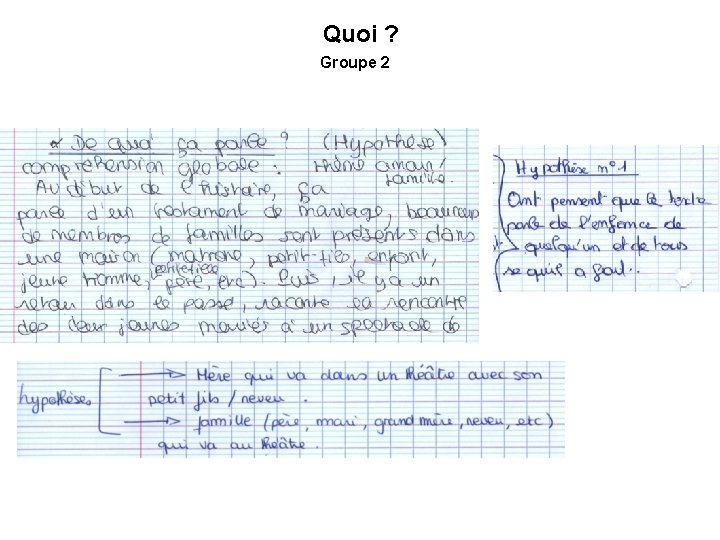 Quoi ?
Groupe 2
* De quoi ça parle ? (Hypothèse)
compréhension globale : thème amour/
famille.
Au début de l'histoire, ça
parle d'un testament de mariage, beaucoup
de membres de familles sont présents dans
une maison (matrone, petit-fils, enfant,
jeune homme, père, etc). Puis, il y a un
retour dans le passé, raconte la rencontre
des deux jeunes mariés à un spectacle de
Hypothèse n°1
Ont pensent que le texte
parle de l'enfance de
quelqu'un et de tous
se qu'il a fait..
hypothèses
→ Mère qui va dans un théâtre avec son
petit fils / neveu .
→ famille (père, mari, grand mère, neveu, etc)
qui va au théâtre .